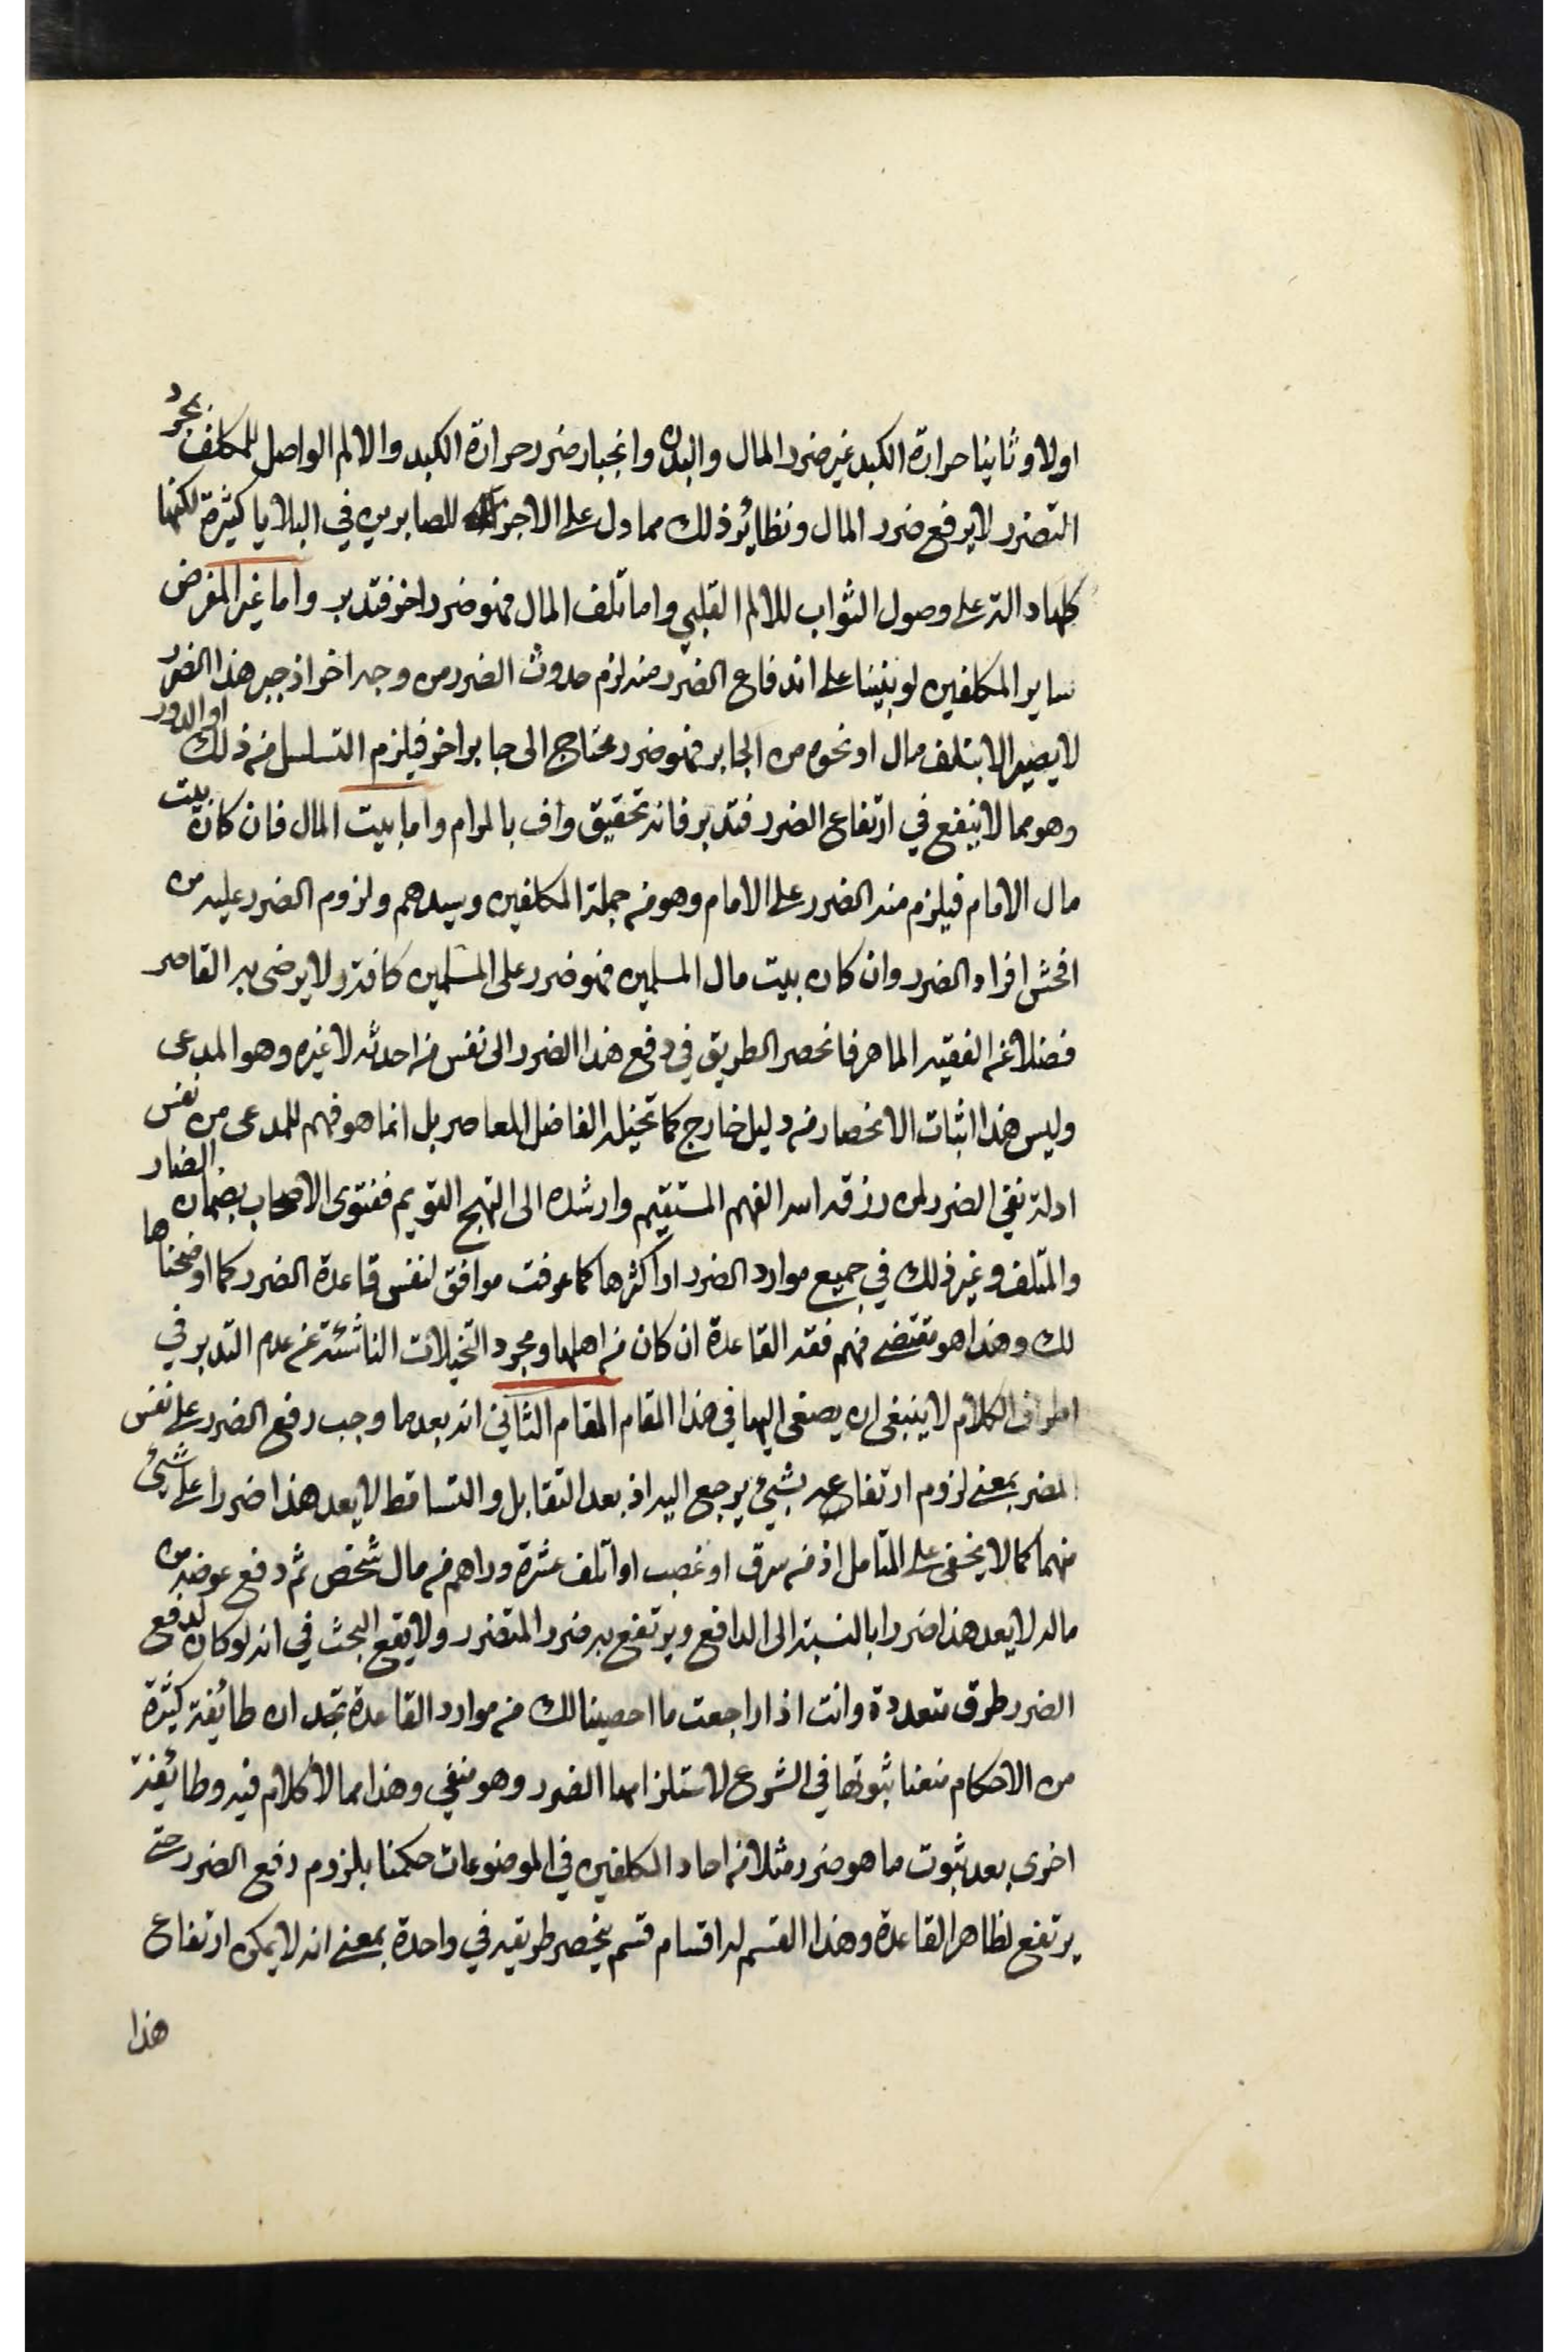 اولا وثانيا حرارة الكبد غير ضرر المال والبدن وانجبار ضرر حرارة الكبد والالم الواصل للمكلف بمجرد
التضرر لا يرفع ضرر المال ونظائر ذلك مما دل على الاجر للصابرين في البلايا كثيرة لكنها
كلها دالة على وصول الثواب للالم القلبي واما تلف المال فهو ضرر اخر فتدبر واما غير المفرض
ساير المكلفين لو بنينا على اندفاع الضرر منه لزم حدوث الضرر من وجه اخر اذ جبر هذا الضرر
لا يصير الا بتلف مال او نحوه من الجابر فهو ضرر محتاج الى جابر اخر فيلزم التسلسل من ذلك او الدور
وهو مما لا ينفع في ارتفاع الضرر فتدبر فانه تحقيق واف بالمرام واما بيت المال فان كان بيت
مال الامام فيلزم منه الضرر على الامام وهو من جملة المكلفين وسيدهم ولزوم الضرر عليه من
افحش افراد الضرر وان كان بيت مال المسلمين فهو ضرر على المسلمين كافة ولا يرضى به القاصر
فضلا عن الفقيه الماهر فانحصر الطريق في دفع هذا الضرر الى نفس من احدثه لا غيره وهو المدعى
وليس هذا اثبات الانحصار من دليل خارج كما تخيله الفاضل المعاصر بل انما هو فهم للمدعى من نفس
ادلة نفي الضرر لمن رزقه الله الفهم المستقيم وارشده الى النهج القويم ففتوى الاصحاب بضمان الضار
والمتلف وغير ذلك في جميع موارد الضرر او اكثرها كما عرفت موافق لنفس قاعدة الضرر كما اوضحناها
لك وهذا هو مقتضى فهم فقه القاعدة ان كان من اهلها ومجرد التخيلات الناشئة عن عدم التدبر في
اطراف الكلام لا ينبغي ان يصغى اليها في هذا المقام المقام الثاني انه بعد ما وجب رفع الضرر على نفس
المضر بمعنى لزوم ارتفاعه بشيء يرجع اليه اذ بعد التقابل والتساقط لا يعد هذا ضررا على شيء
منهما كما لا يخفى على المتامل اذ من سرق او غصب او اتلف عشرة دراهم من مال شخص ثم دفع عوضه من
ماله لا يعد هذا ضررا بالنسبة الى الدافع ويرتفع به ضرر المتضرر ولا يقع البحث في انه لو كان لدفع
الضرر طرق متعددة وانت اذا راجعت ما احصينا لك من موارد القاعدة تجد ان طائفة كثيرة
من الاحكام منعنا ثبوتها في الشرع لاستلزامها الضرر وهو منفي وهذا مما لا كلام فيه وطائفة
اخرى بعد ثبوت ما هو ضرر مثلا من احاد المكلفين في الموضوعات حكمنا بلزوم رفع الضرر حتى
يرتفع لظاهر القاعدة وهذا القسم له اقسام قسم ينحصر طريقه في واحدة بمعنى انه لا يمكن ارتفاع
هذا